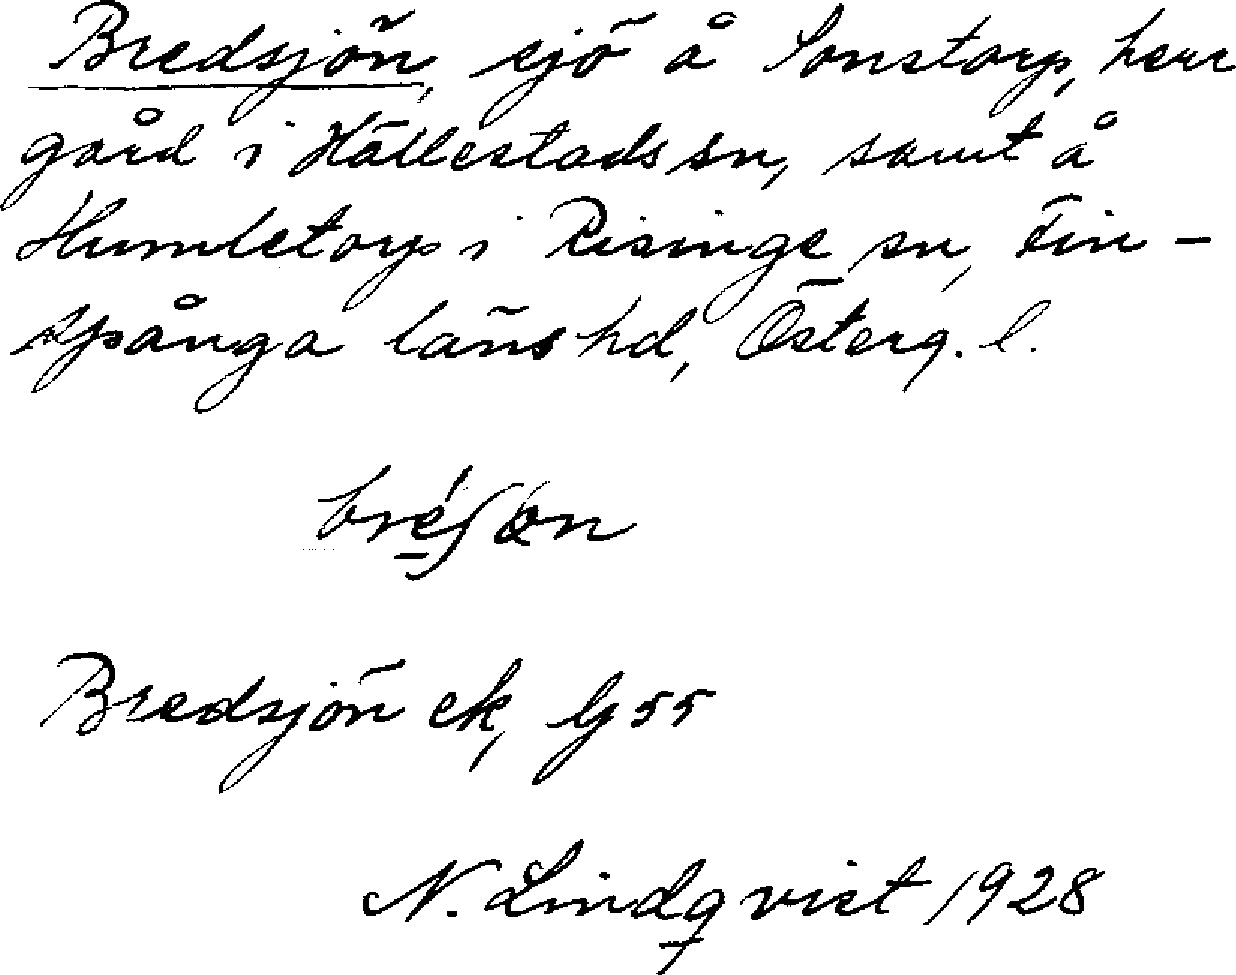 Bredsjön, sjö å Sonstorp, herr
gård i Hällestads sn, samt å
Humletorp i Risinge sn, Fin-
spånga läns hd, Österg. l.
Bredsjön ek, bl 55
N. Lindqvist 1928